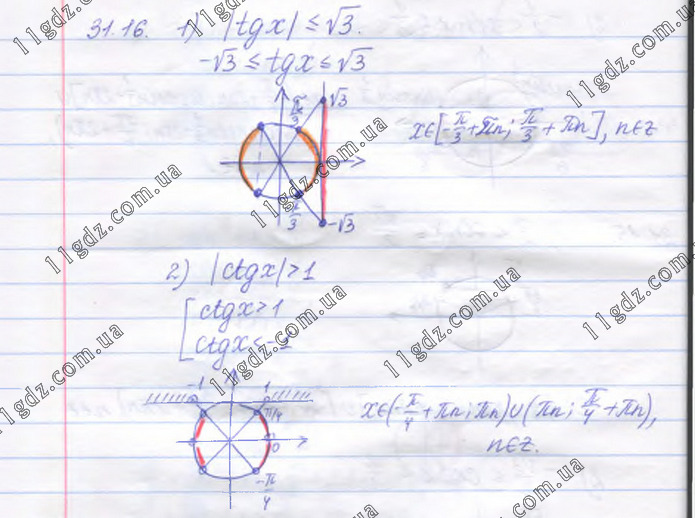 31.16. 1) |tgx| ≤ √3.
-√3 ≤ tgx ≤ √3
π/3
√3
x∈[-π/3+πn; π/3+πn], n∈z
π/3
-√3
2) |ctgx| > 1
[ctgx > 1
ctgx < -1
-1 1
π/4
0
-π/4
x∈(-π/4+πn; πn)∪(πn; π/4+πn),
n∈z.
11gdz.com.ua
11gdz.com.ua
11gdz.com.ua
11gdz.com.ua
11gdz.com.ua
11gdz.com.ua
11gdz.com.ua
11gdz.com.ua
11gdz.com.ua
11gdz.com.ua
11gdz.com.ua
11gdz.com.ua